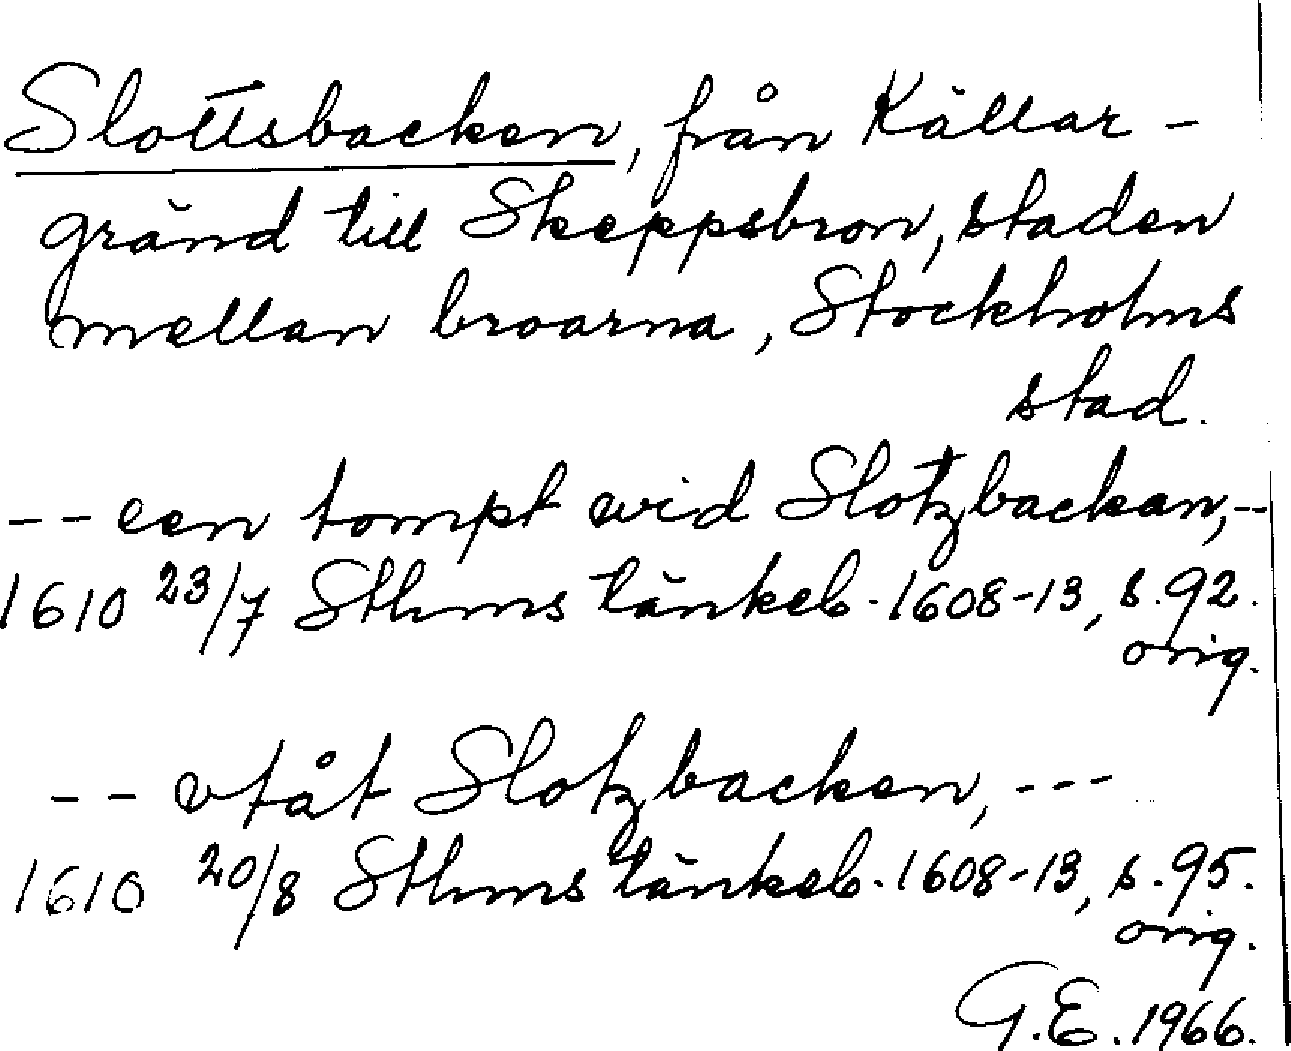 Slottsbacken, från Källar-
gränd till Skeppsbron, staden
mellan broarna, Stockholms
stad.
-- een tompt wid Slotzbackan, --
1610 23/7 Sthms tänkeb. 1608-13, s. 92.
orig.
-- vtåt Slotzbacken, ---
1610 20/8 Sthms tänkeb. 1608-13, s. 95.
orig.
G.E. 1966.